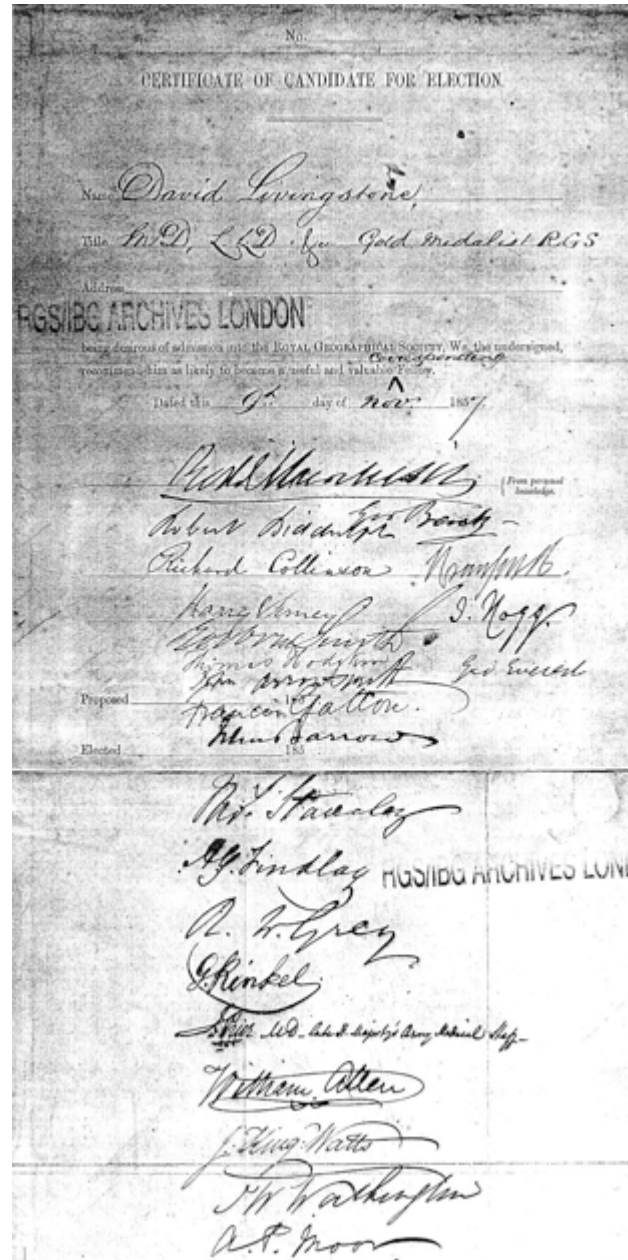 No.
CERTIFICATE OF CANDIDATE FOR ELECTION
Name David Livingstone,
Title M.D, LLD &c Gold Medalist RGS
Address
RGS/IBG ARCHIVES LONDON
being desirous of admission into the ROYAL GEOGRAPHICAL SOCIETY, We, the undersigned,
Corresponding
recommend him as likely to become a useful and valuable ^ Fellow.
Dated this 9th day of Nov. 1857
{From personal knowledge.
Robert Biddulph Geo Back
Richard Collinson
Harry Verney J. Hogg.
Osborne Smith
Thomas Hodgkin Geo Everest
John Arrowsmith
Proposed 185
Francis Galton.
John Barrow
Elected 185
Thos. Staveley
A.G. Findlay
RGS/IBG ARCHIVES LON
R. W. Grey
G. Kinkel
MD. late H. Majesty's Army Medical Staff
William Allen
J. King Watts
Washington
A. P. Moor